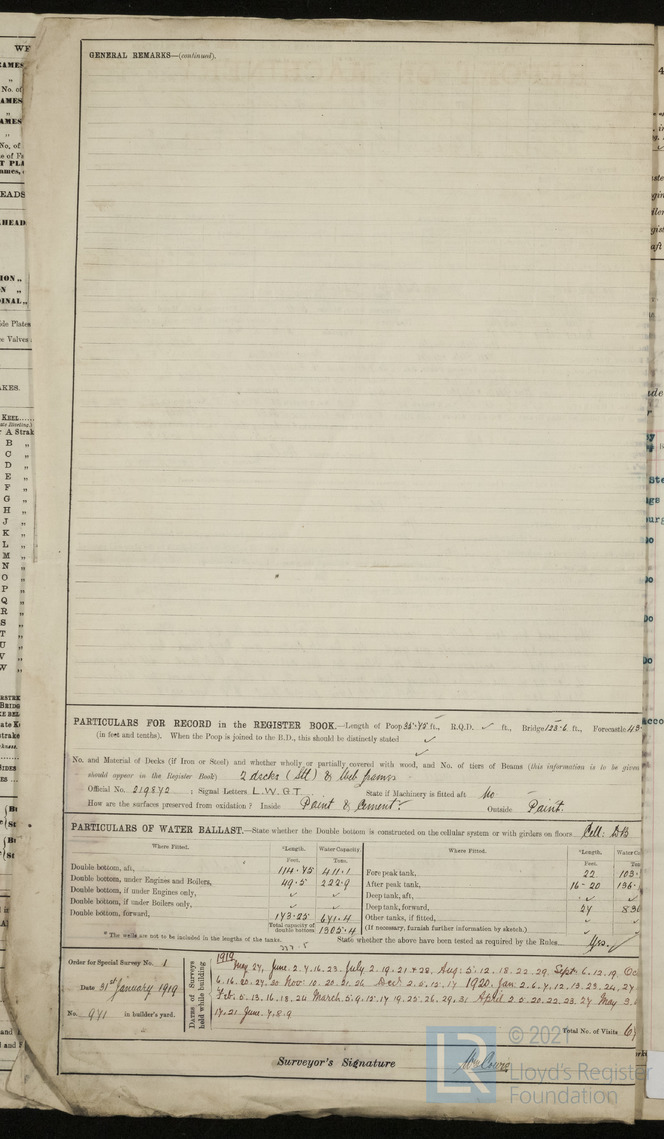 GENERAL REMARKS—(continued).
PARTICULARS FOR RECORD in the REGISTER BOOK.—Length of Poop 35.75 ft., R.Q.D. ✓ ft., Bridge 123.6 ft., Forecastle 43
(in feet and tenths). When the Poop is joined to the B.D., this should be distinctly stated ✓
No. and Material of Decks (if Iron or Steel) and whether wholly or partially covered with wood, and No. of tiers of Beams (this information is to be given
should appear in the Register Book) 2 decks (Stl) & Web frames
Official No. 219872 : Signal Letters L.W.G.T. State if Machinery is fitted aft No
How are the surfaces preserved from oxidation? Inside Paint & Cement. Outside Paint.
PARTICULARS OF WATER BALLAST.—State whether the Double bottom is constructed on the cellular system or with girders on floors Cell: DB
Where Fitted. *Length. Water Capacity. Where Fitted. *Length. Water
Feet. Tons. Feet.
Double bottom, aft, 114.75 411.1 Fore peak tank, 22 103.
Double bottom, under Engines and Boilers, 49.5 222.9 After peak tank, 16-20 136.
Double bottom, if under Engines only, ✓ ✓ Deep tank, aft, ✓ ✓
Double bottom, if under Boilers only, ✓ ✓ Deep tank, forward, 27
Double bottom, forward, 173.25 671.4 Other tanks, if fitted, ✓ ✓
Total capacity of double bottom 1305.4 (If necessary, furnish further information by sketch.)
* The wells are not to be included in the lengths of the tanks. State whether the above have been tested as required by the Rules Yes. ✓
Order for Special Survey No. 1
Date 31st January 1919
No. 971 in builder's yard.
DATES of Surveys held while building
1919
May 27, June. 2.7.16.23. July 2.19.21 & 28. Aug: 5.12.18.22.29. Sept: 6.12.19. Oc
6.16.20.27.30 Nov: 10.20.21.26 Dec: 2.8.12.17 1920. Jan: 2.6.7.12.13.23.24.27
Feb. 5.13.16.18.26 March. 5.9.12.17.19.25.26.29.31 April 2.5.20.22.23.27 May 3.
17.21 June. 7.8.9
Total No. of Visits
Surveyor's Signature
© 2021
LR
Lloyd's Register
Foundation